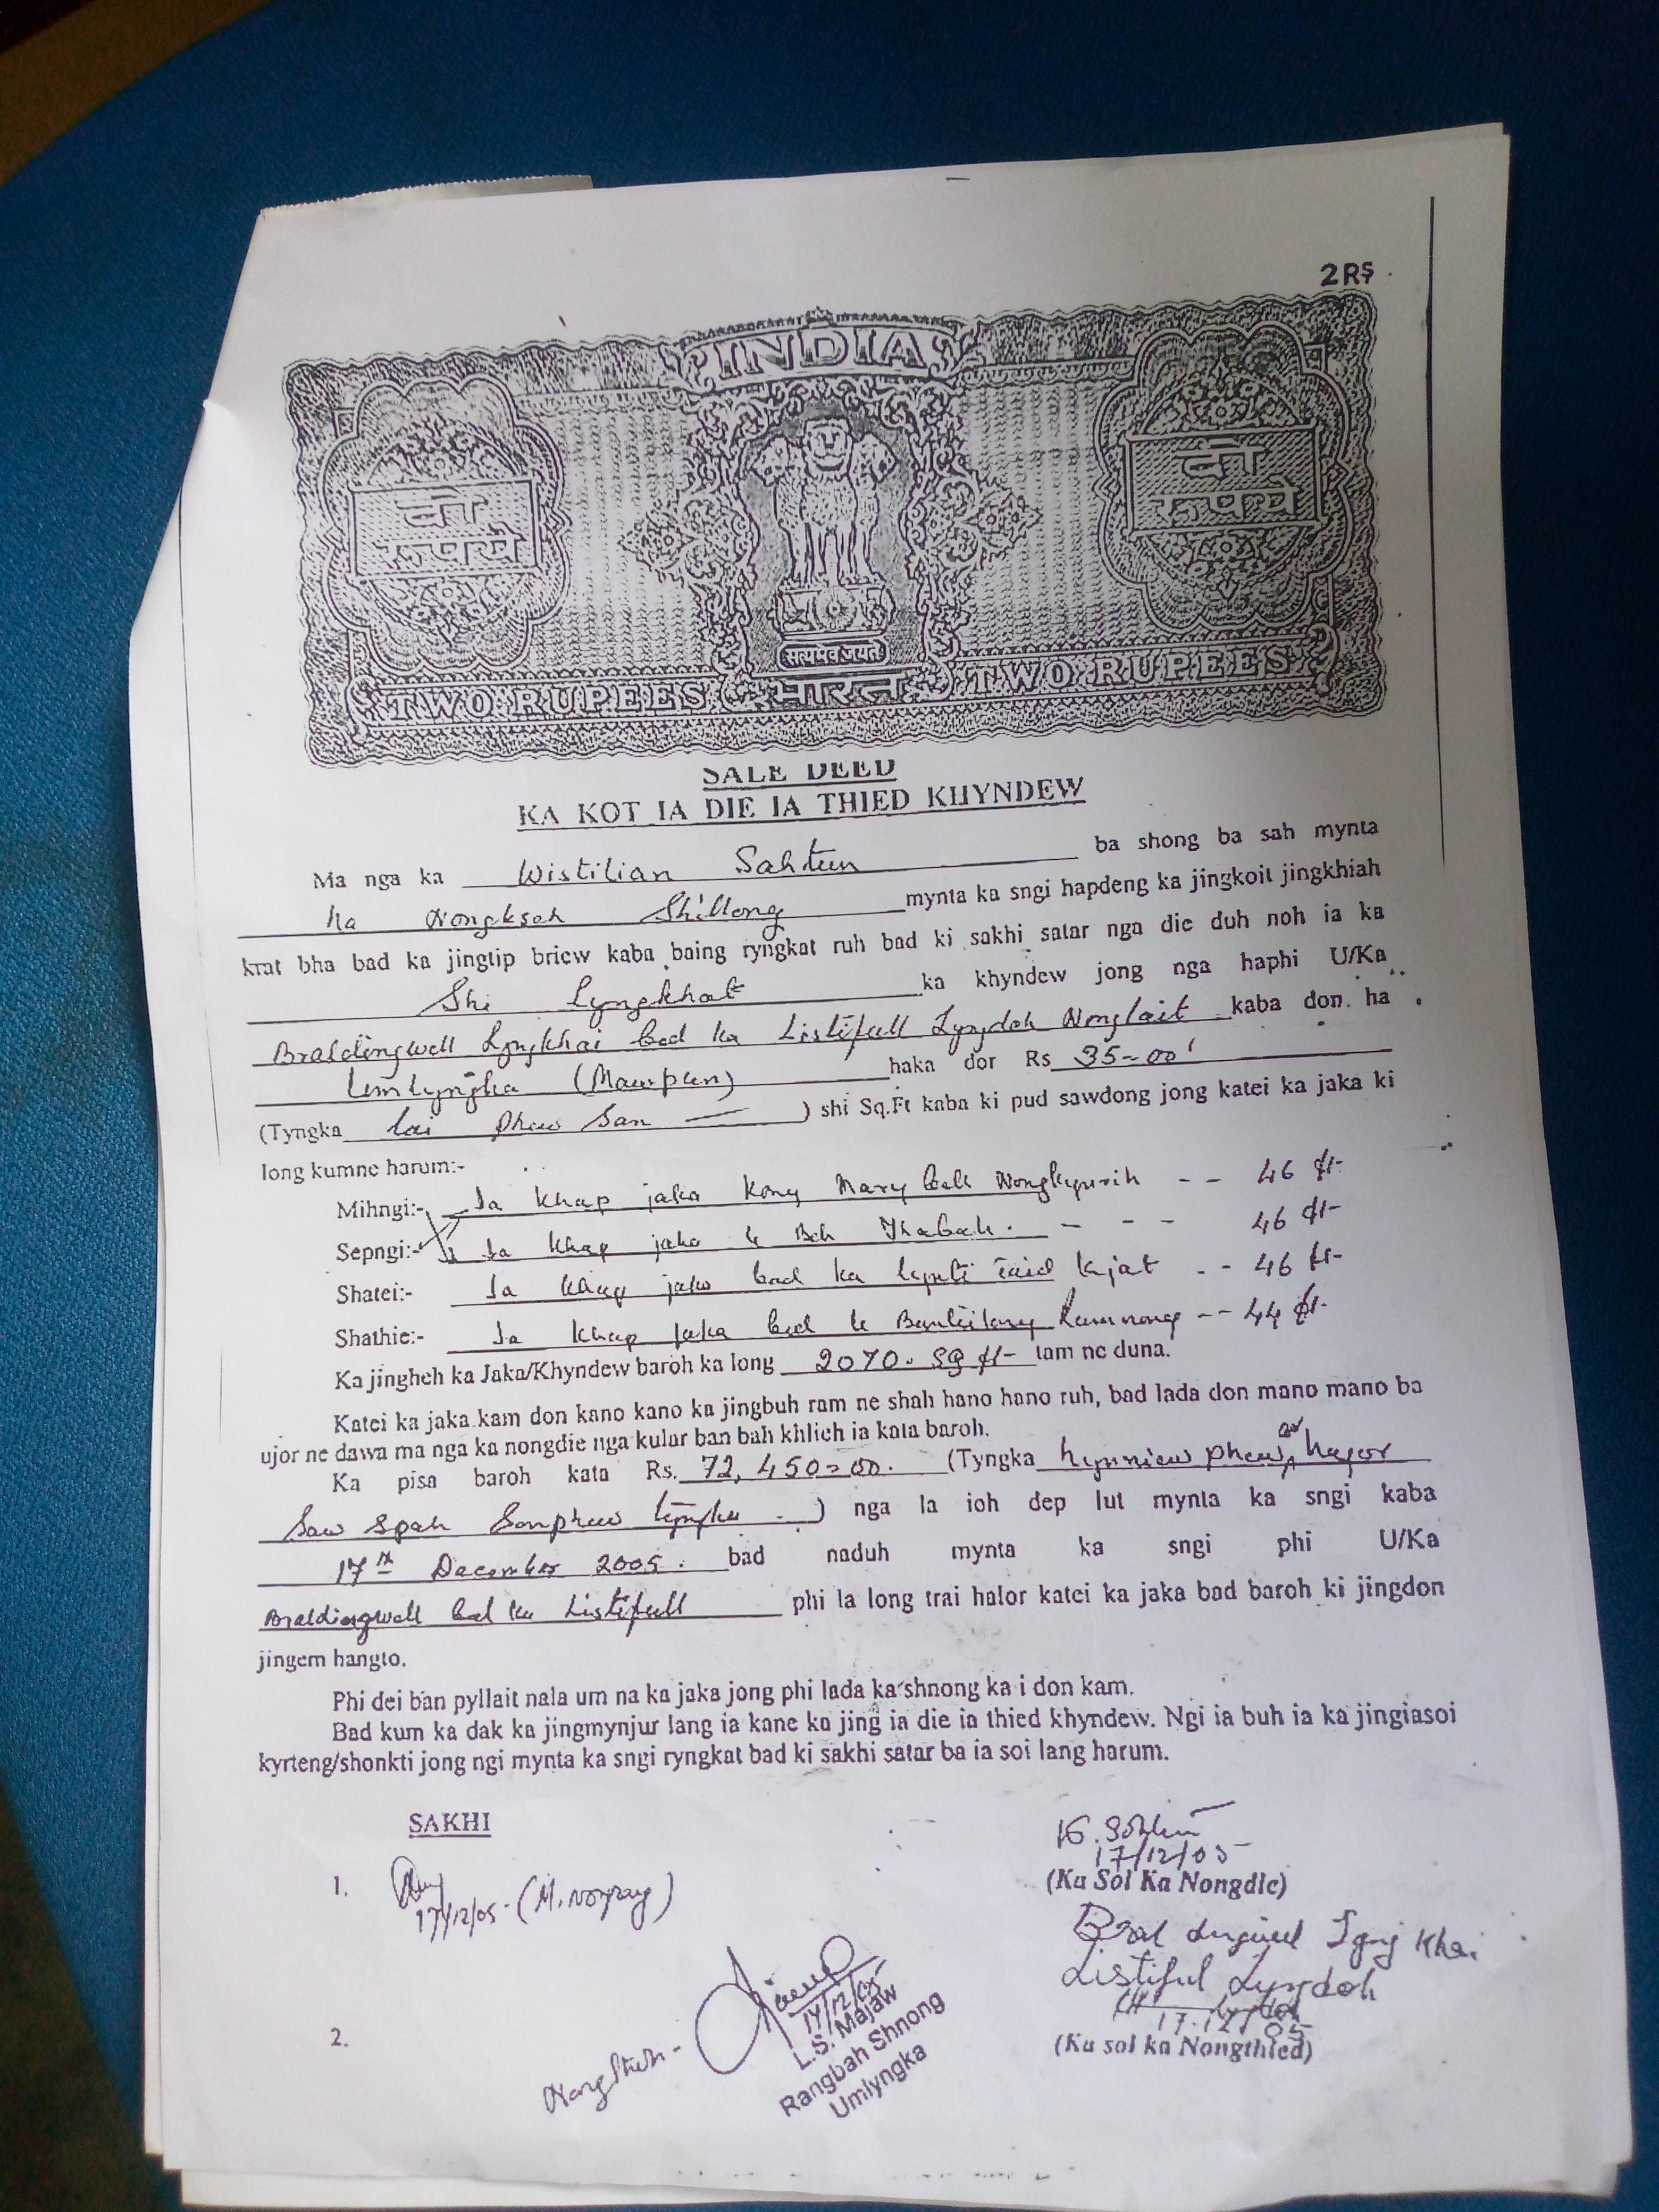 2RS
INDIA
दो
रूपये
दो
रूपये
सत्यमेव जयते
TWO RUPEES भारत TWO RUPEES
SALE DEED
KA KOT IA DIE IA THIED KHYNDEW
Ma nga ka Wistilian Sahtun ba shong ba sah mynta
ha Nongkseh Shillong mynta ka sngi hapdeng ka jingkoit jingkhiah
krat bha bad ka jingtip briew kaba baing ryngkat ruh bad ki sakhi satar nga die duh noh ia ka
Shi Lyngkhat ka khyndew jong nga haphi U/Ka
Braldingwell Lyngkhai bad ka Listifull Lyngdoh Nonglait kaba don ha
Umlyngka (Mawpun) haka dor Rs 35=00
(Tyngka lai phew San ) shi Sq.Ft kaba ki pud sawdong jong katei ka jaka ki
long kumne harum:-
Mihngi:- Ia khap jaka Kong Mary Nongkynrih -- 46 ft-
Sepngi:- Ia khap jaka u Bah Thabah. - - - 46 ft-
Shatei:- Ia khap jaka bad ka lynti ïaid kjat -- 46 ft-
Shathie:- Ia khap jaka bad u Banteilang -- 44 ft-
Ka jingheh ka Jaka/Khyndew baroh ka long 2070. sq ft- tam ne duna.
Katei ka jaka kam don kano kano ka jingbuh ram ne shah hano hano ruh, bad lada don mano mano ba
ujor ne dawa ma nga ka nongdie nga kular ban bah khlieh ia kata baroh.
Ka pisa baroh kata Rs. 72,450=00. (Tyngka hynniew phew ar hajar
Saw Spah Sanphew tyngka ) nga la ioh dep lut mynta ka sngi kaba
17th December 2005. bad naduh mynta ka sngi phi U/Ka
Braldingwell bad ka Listifull phi la long trai halor katei ka jaka bad baroh ki jingdon
jingem hangto.
Phi dei ban pyllait nala um na ka jaka jong phi lada ka shnong ka i don kam.
Bad kum ka dak ka jingmynjur lang ia kane ka jing ia die ia thied khyndew. Ngi ia buh ia ka jingiasoi
kyrteng/shonkti jong ngi mynta ka sngi ryngkat bad ki sakhi satar ba ia soi lang harum.
SAKHI
17/12/05
(Ka Soi Ka Nongdie)
1. 17/12/05-
Listiful Lyngdoh
17.12.05
(Ka soi ka Nongthied)
2.
17/12/05
L.S. Majaw
Rangbah Shnong
Umlyngka